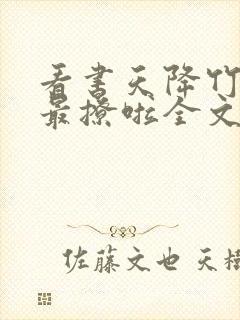 看书天降竹
最撩啦全文
佐藤文也 天樹